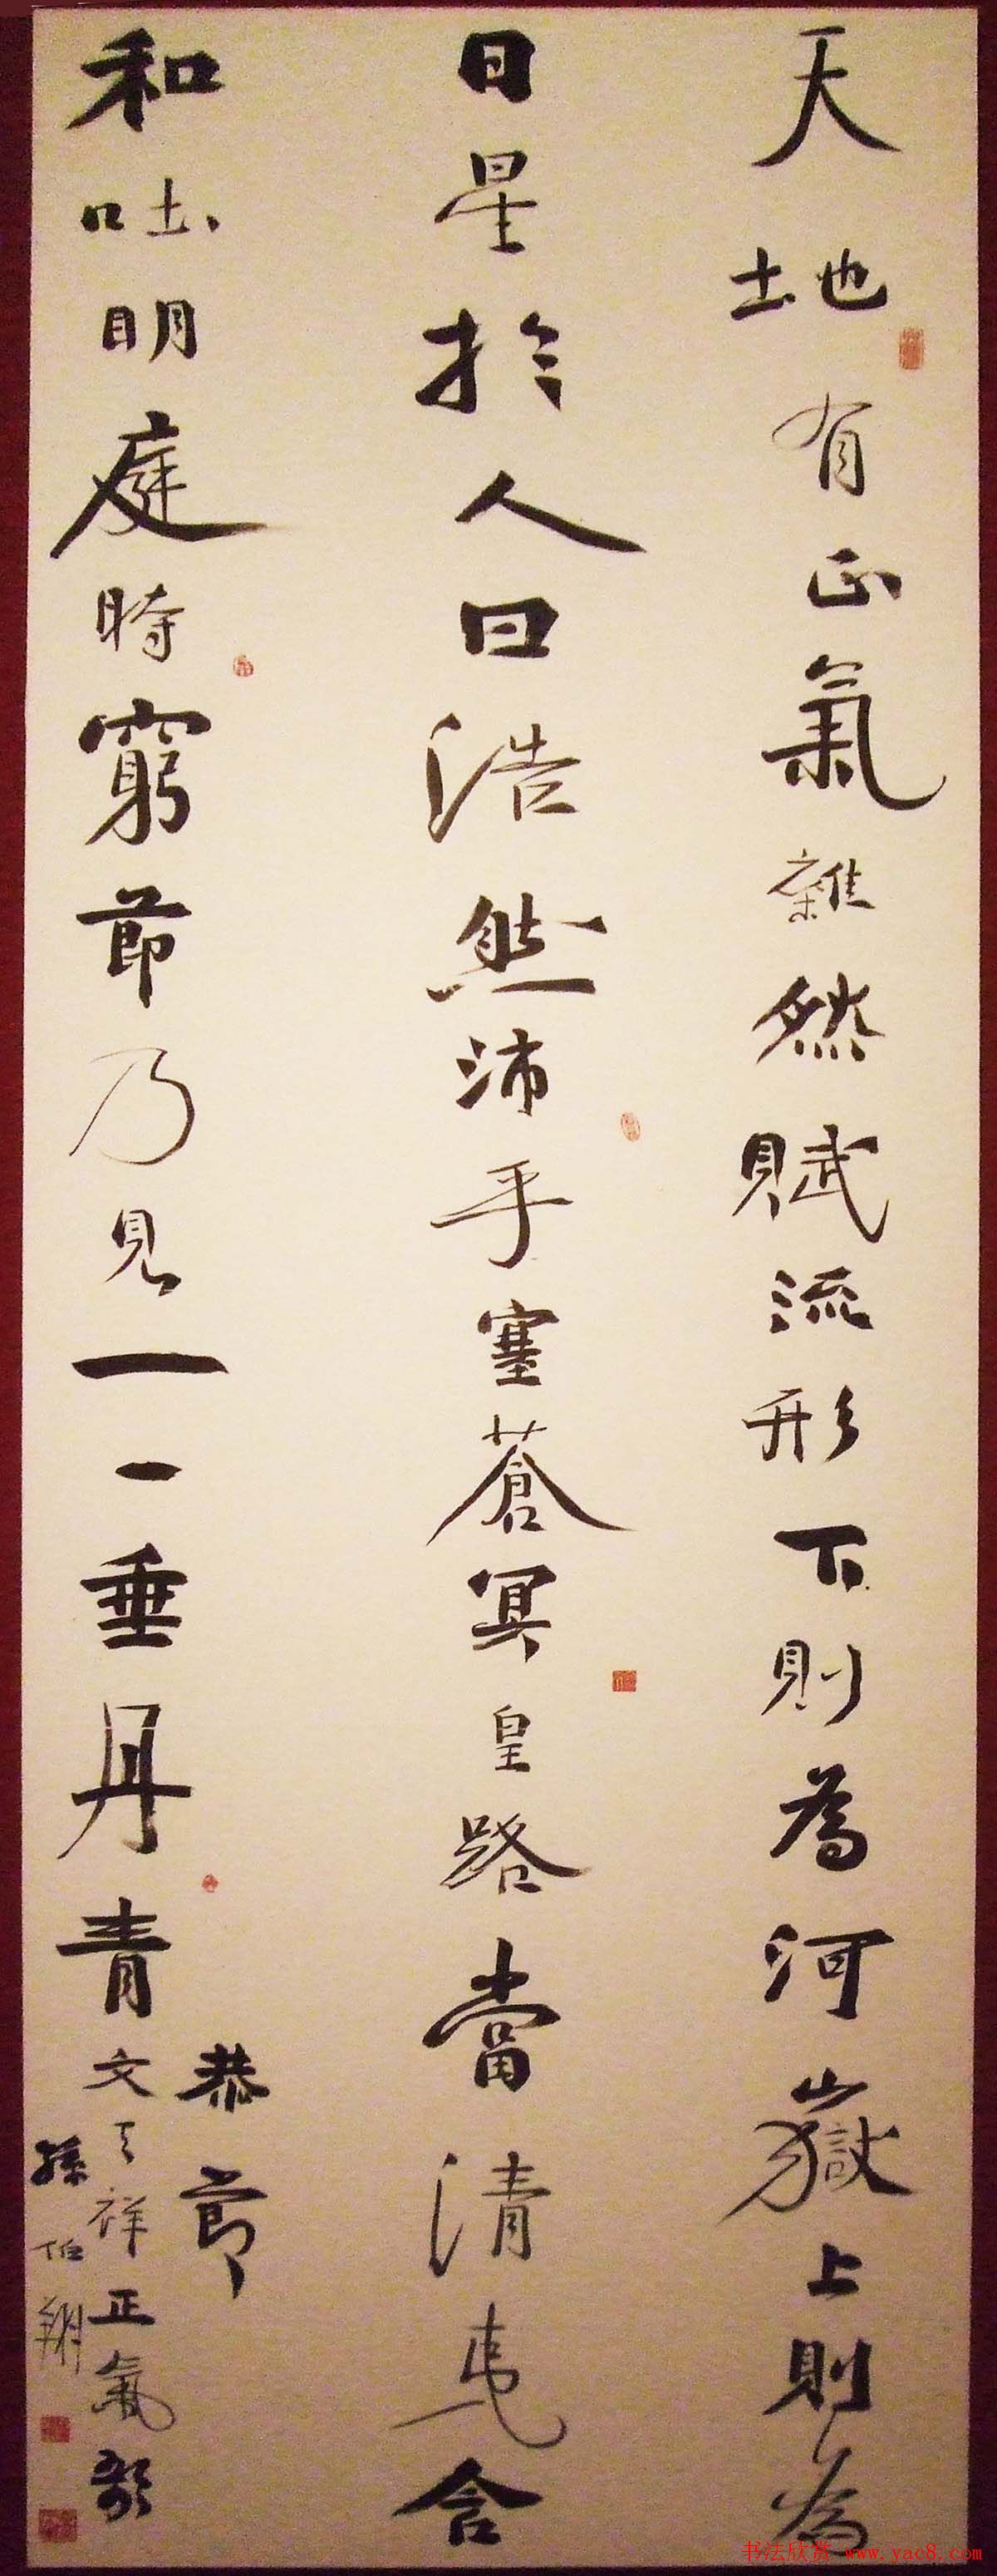 天地有正氣雜然賦流形下則為河嶽上則為
日星於人曰浩然沛乎塞蒼冥皇路當清夷含
和吐明庭時窮節乃見一一垂丹青
恭節
文天祥正氣歌
孫伯翔
书法欣赏 www.yac8.com